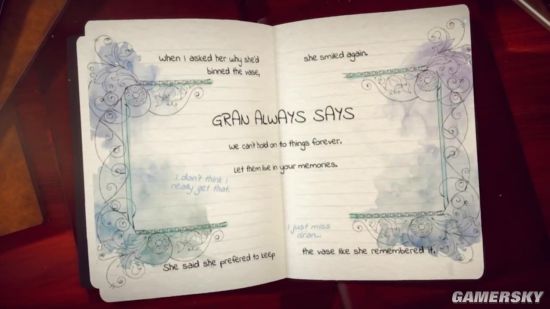 when I asked her why she'd
binned the vase,
she smiled again.
GRAN ALWAYS SAYS
we can't hold on to things forever.
Let them live in your memories.
I don't think I
really get that.
I just miss
Gran...
She said she prefered to keep
the vase like she remembered it.
GAMERSKY